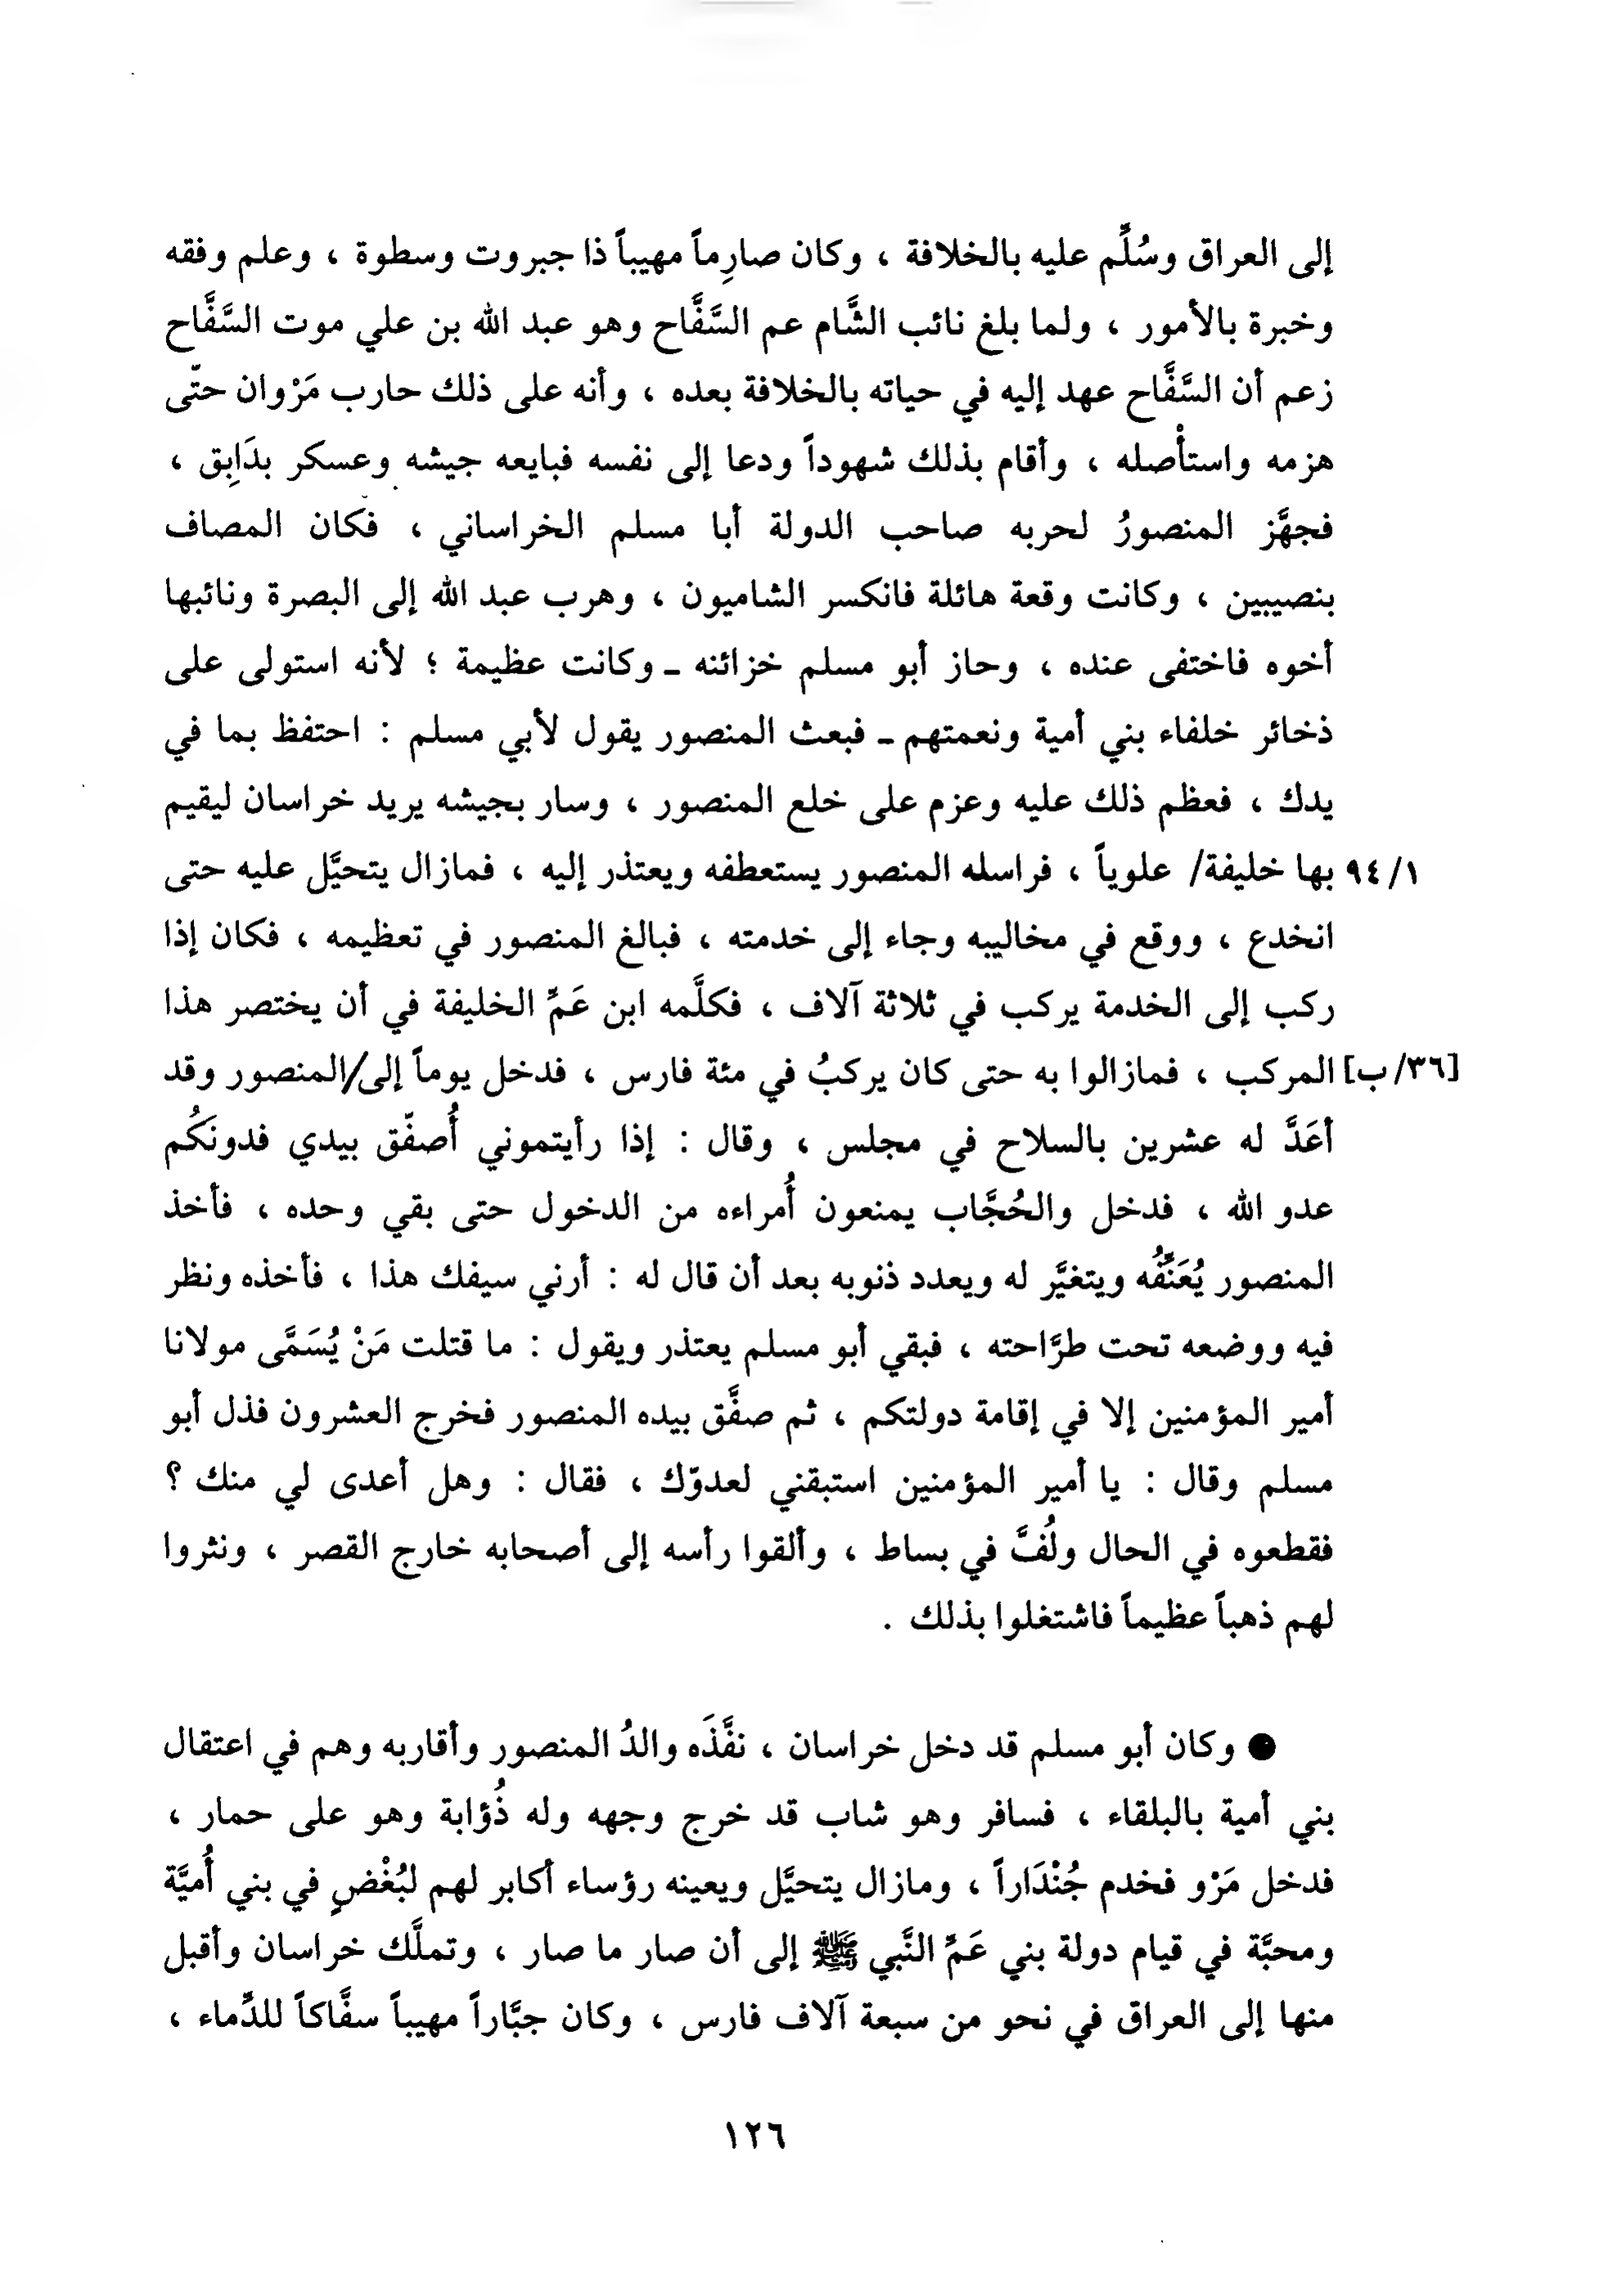 إلى العراق وسُلِّم عليه بالخلافة ، وكان صارِماً مهيباً ذا جبروت وسطوة ، وعلم وفقه
وخبرة بالأمور ، ولما بلغ نائب الشَّام عم السَّفَّاح وهو عبد الله بن علي موت السَّفَّاح
زعم أن السَّفَّاح عهد إليه في حياته بالخلافة بعده ، وأنه على ذلك حارب مَرْوان حتّى
هزمه واستأْصله ، وأقام بذلك شهوداً ودعا إلى نفسه فبايعه جيشه وعسكر بدَابِق ،
فجهَّز المنصورُ لحربه صاحب الدولة أبا مسلم الخراساني ، فكان المصاف
بنصيبين ، وكانت وقعة هائلة فانكسر الشاميون ، وهرب عبد الله إلى البصرة ونائبها
أخوه فاختفى عنده ، وحاز أبو مسلم خزائنه ـ وكانت عظيمة ؛ لأنه استولى على
ذخائر خلفاء بني أمية ونعمتهم ـ فبعث المنصور يقول لأبي مسلم : احتفظ بما في
يدك ، فعظم ذلك عليه وعزم على خلع المنصور ، وسار بجيشه يريد خراسان ليقيم
٩٤/١ بها خليفة/ علوياً ، فراسله المنصور يستعطفه ويعتذر إليه ، فمازال يتحيَّل عليه حتى
انخدع ، ووقع في مخاليبه وجاء إلى خدمته ، فبالغ المنصور في تعظيمه ، فكان إذا
ركب إلى الخدمة يركب في ثلاثة آلاف ، فكلَّمه ابن عَمِّ الخليفة في أن يختصر هذا
[٣٦/ب] المركب ، فمازالوا به حتى كان يركبُ في مئة فارس ، فدخل يوماً إلى/المنصور وقد
أعَدَّ له عشرين بالسلاح في مجلس ، وقال : إذا رأيتموني أُصفّق بيدي فدونَكُم
عدو الله ، فدخل والحُجَّاب يمنعون أُمراءه من الدخول حتى بقي وحده ، فأخذ
المنصور يُعَنِّفُه ويتغيَّر له ويعدد ذنوبه بعد أن قال له : أرني سيفك هذا ، فأخذه ونظر
فيه ووضعه تحت طرَّاحته ، فبقي أبو مسلم يعتذر ويقول : ما قتلت مَنْ يُسَمَّى مولانا
أمير المؤمنين إلا في إقامة دولتكم ، ثم صفَّق بيده المنصور فخرج العشرون فذل أبو
مسلم وقال : يا أمير المؤمنين استبقني لعدوّك ، فقال : وهل أعدى لي منك ؟
فقطعوه في الحال ولُفَّ في بساط ، وألقوا رأسه إلى أصحابه خارج القصر ، ونثروا
لهم ذهباً عظيماً فاشتغلوا بذلك .
● وكان أبو مسلم قد دخل خراسان ، نفَّذَه والدُ المنصور وأقاربه وهم في اعتقال
بني أمية بالبلقاء ، فسافر وهو شاب قد خرج وجهه وله ذُؤابة وهو على حمار ،
فدخل مَرْو فخدم جُنْدَاراً ، ومازال يتحيَّل ويعينه رؤساء أكابر لهم لبُغْضٍ في بني أُميَّة
ومحبَّة في قيام دولة بني عَمِّ النَّبي ﷺ إلى أن صار ما صار ، وتملَّك خراسان وأقبل
منها إلى العراق في نحو من سبعة آلاف فارس ، وكان جبَّاراً مهيباً سفَّاكاً للدِّماء ،
١٢٦